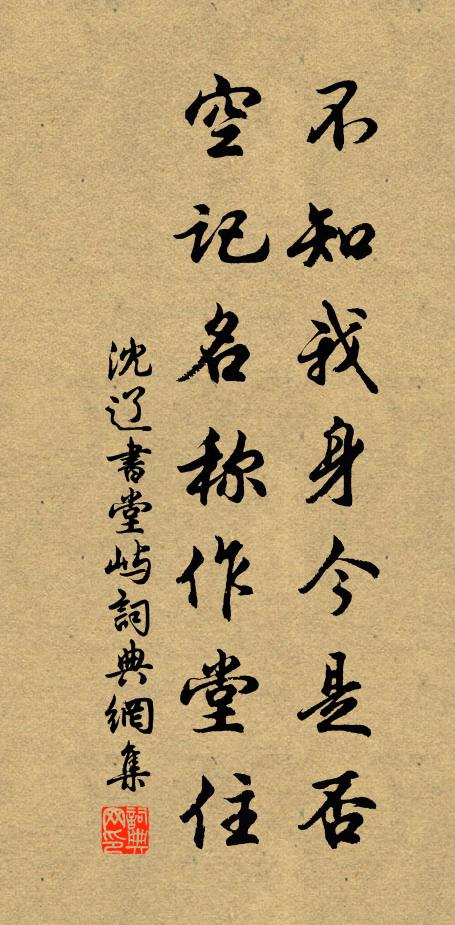 不知我身今是否
空记名称作堂住
沈辽書堂屿詞典網集
詞典网印